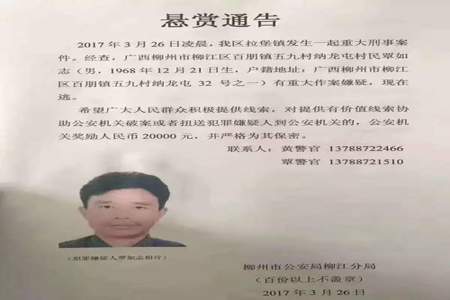 悬赏通告
2017年3月26日凌晨，我区拉堡镇发生一起重大刑事案
件。经查，广西柳州市柳江区百朋镇五九村纳龙屯村民覃如
志（男，1968年12月21日生，户籍地址：广西柳州市柳江
区百朋镇五九村纳龙屯32号之一）有重大作案嫌疑，现在
逃。
希望广大人民群众积极提供线索，对提供有价值线索协
助公安机关破案或者扭送犯罪嫌疑人到公安机关的，公安机
关奖励人民币20000元，并严格为其保密。
联系人：黄警官 13788722466
覃警官 13788721510
（犯罪嫌疑人覃如志相片）
柳州市公安局柳江分局
（百份以上不盖章）
2017年3月26日